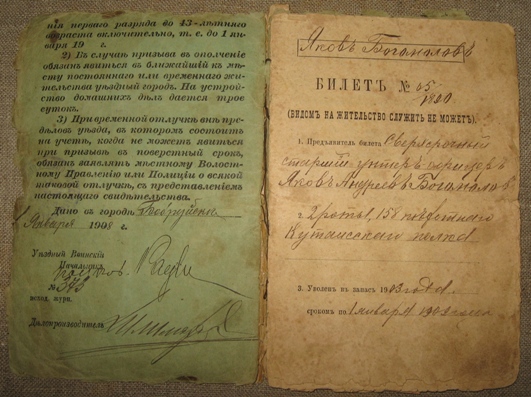 нія перваго разряда во 43-лѣтняго
возраста включительно, т. е. до 1 янва
варя 19 г.
2) Въ случаѣ призыва въ ополченіе
обязанъ явиться въ ближайшій къ мѣ-
сту постояннаго или временнаго жи-
тельства уѣздный городъ. На устрой-
ство домашнихъ дѣлъ дается трое
сутокъ.
3) При временной отлучкѣ внѣ пре-
дѣловъ уѣзда, въ которомъ состоитъ
на учетѣ, когда не можетъ явиться
при призывѣ въ поверстный срокъ,
обязанъ заявлять мѣстному Волост-
ному Правленію или Полиціи о всякой
таковой отлучкѣ, съ представленіемъ
настоящаго свидѣтельства.
Дано въ городѣ Бобруйскѣ
1 Января 1908 г.
Уѣздный Воинскій
Начальникъ
№ 345
исход. журн.
Дѣлопроизводитель
Яковъ Богаполовъ
БИЛЕТЪ № 05
1800
(ВИДОМЪ НА ЖИТЕЛЬСТВО СЛУЖИТЬ НЕ МОЖЕТЪ).
1. Предъявитель билета Сверхсрочный
старшій унтеръ офицеръ
Яковъ Андреевъ Богаполовъ
г 2 роты, 158 пѣхотнаго
Кутаисскаго полка
3. Уволенъ въ запасъ 1903 года
срокомъ по 1 января 1908 года